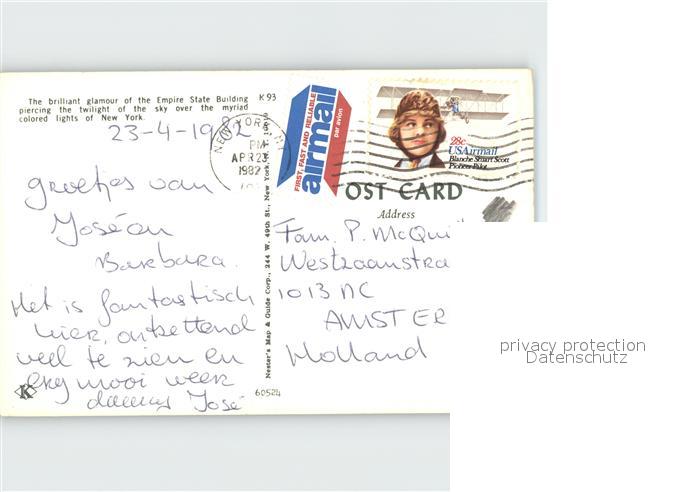 The brilliant glamour of the Empire State Building
piercing the twilight of the sky over the myriad
colored lights of New York.
K 93
23-4-1982
NEW YORK, N.Y.
PM
APR 23
1982
FIRST, FAST AND RELIABLE
airmail
par avion
28c
USAirmail
Blanche Stuart Scott
Pioneer Pilot
OST CARD
Address
groetjes van
José en
Barbara.
Het is fantastisch
hier, ontzettend
veel te zien en
erg mooi weer
José
Nester's Map & Guide Corp., 244 W. 49th St., New York, N.Y.
60524
K
Fam. P. McQui
Westzaanstra
1013 NC
AMSTER
Holland
privacy protection
Datenschutz